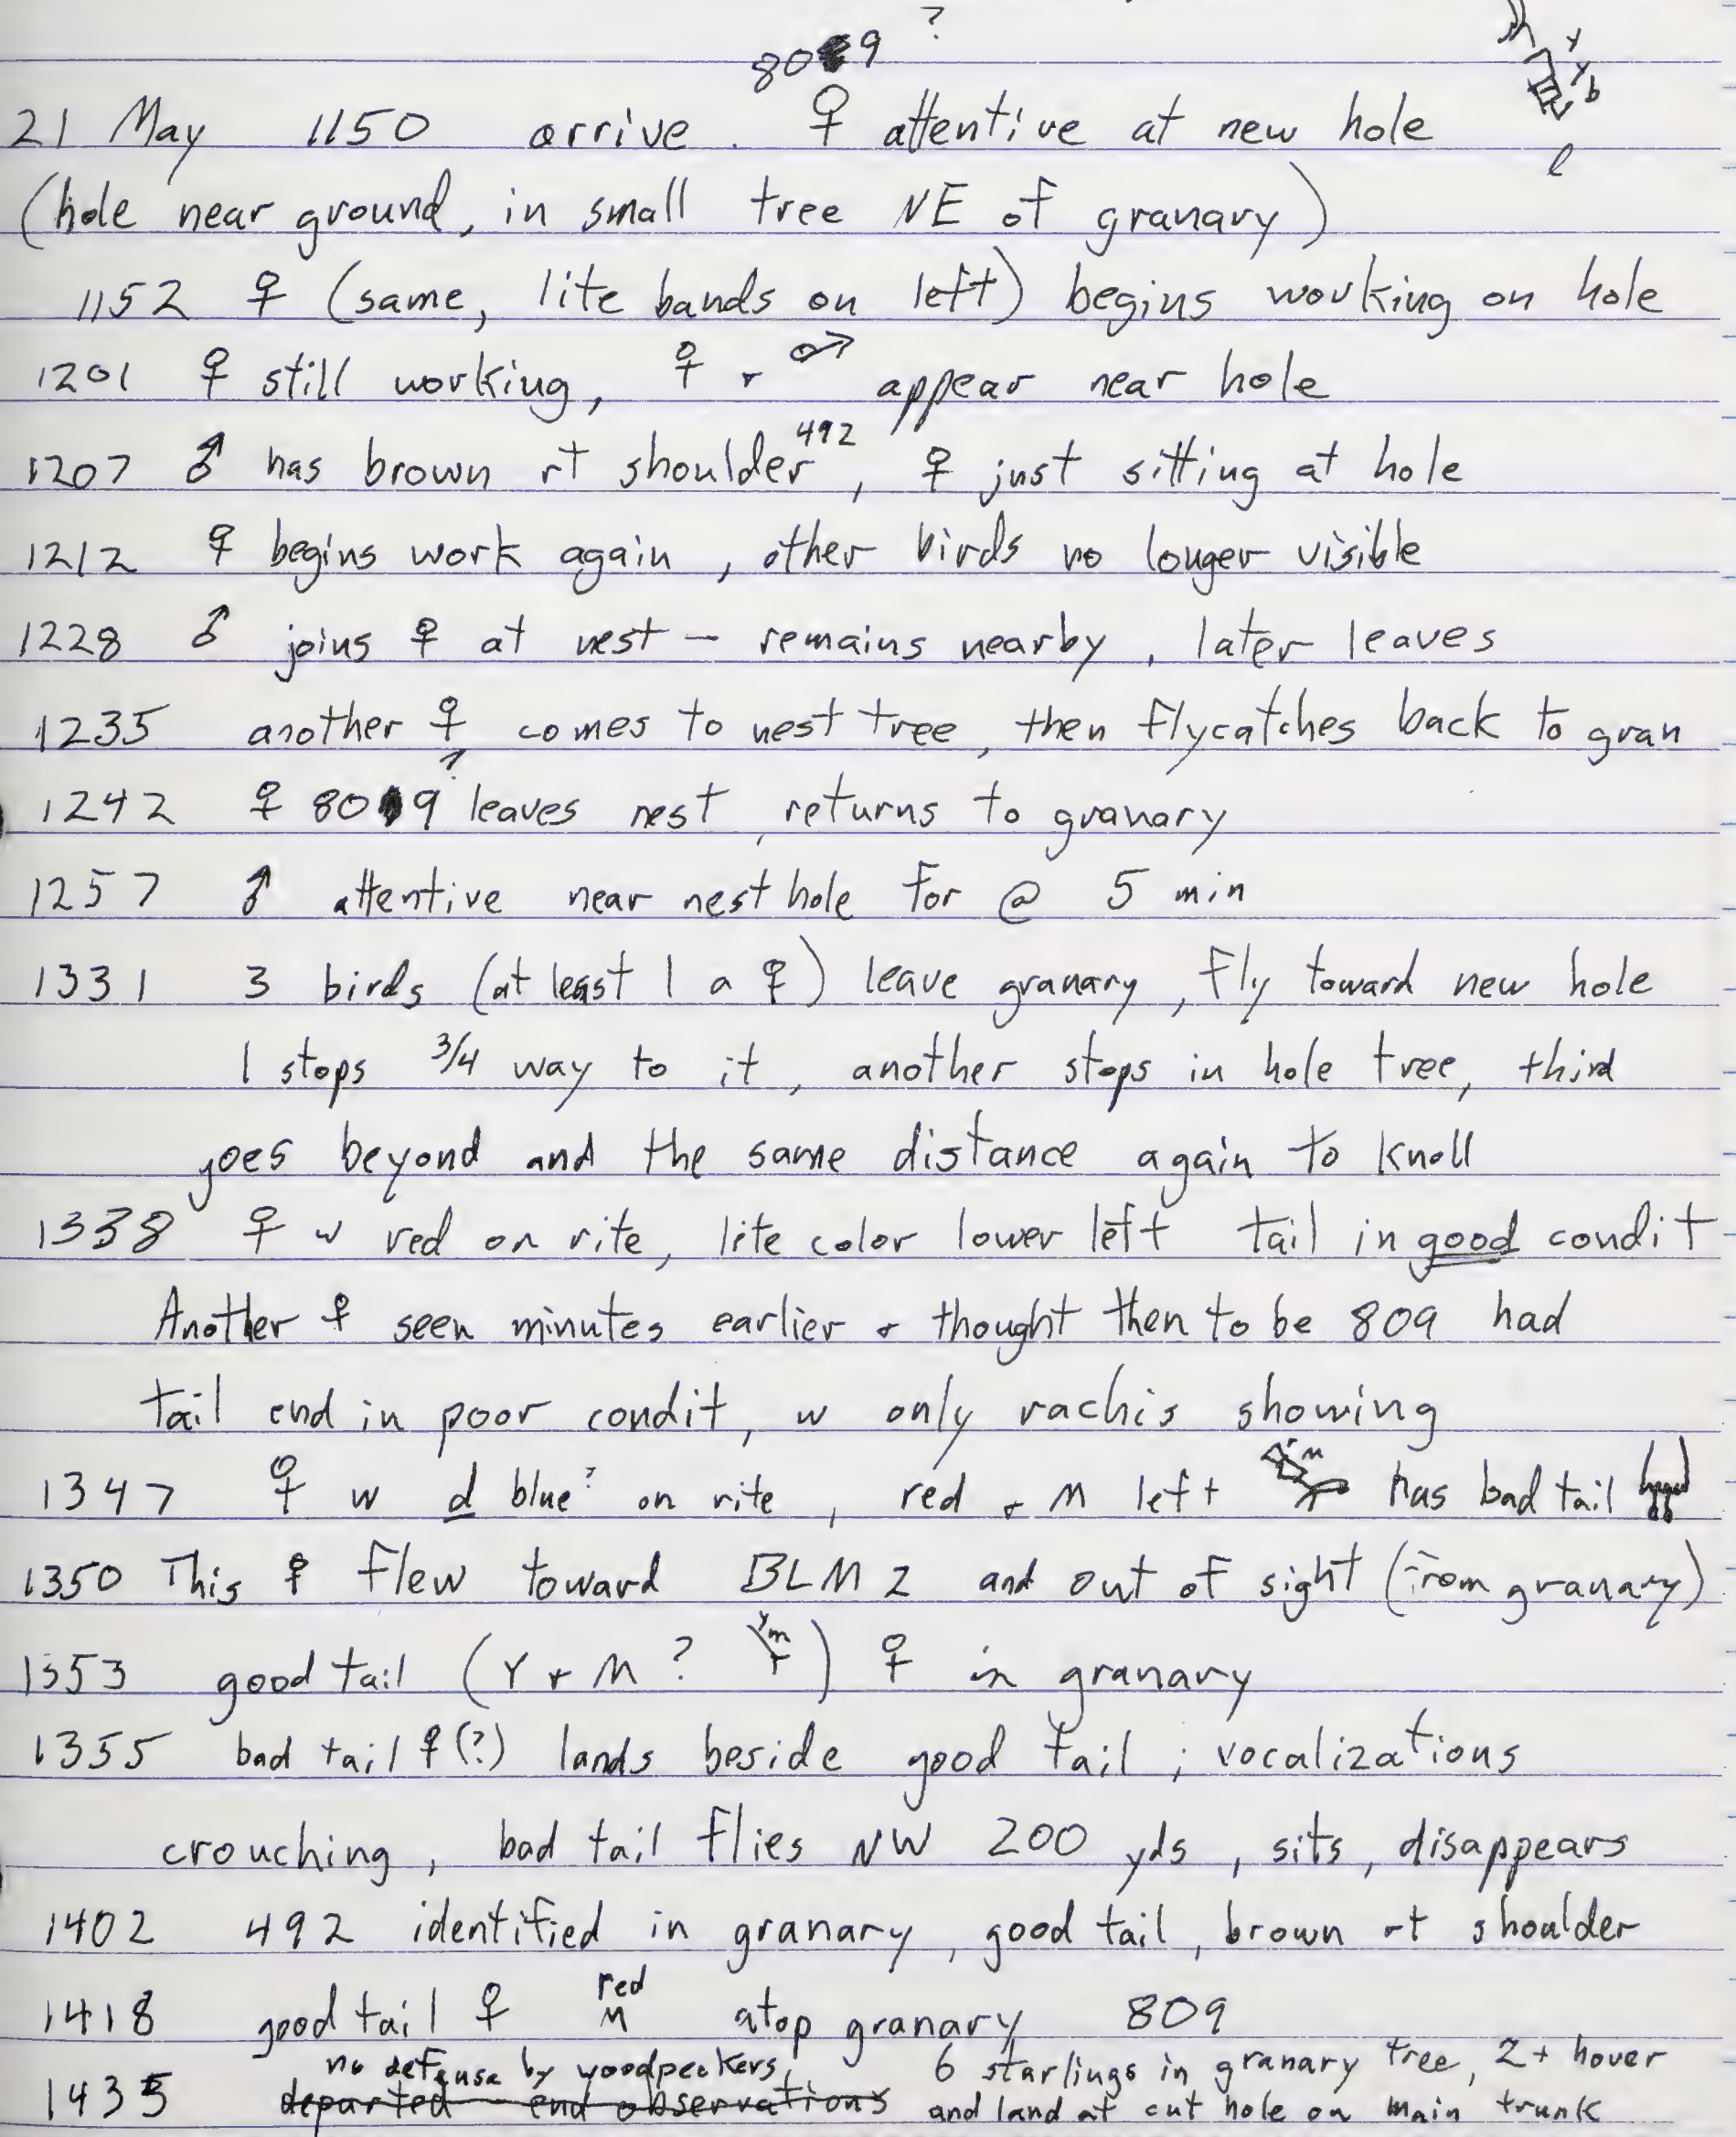 ?
809
y
y
b
l
21 May 1150 arrive. ♀ attentive at new hole
(hole near ground, in small tree NE of granary)
1152 ♀ (same, lite bands on left) begins working on hole
1201 ♀ still working, ♀ + ♂ appear near hole
1207 ♂ has brown rt shoulder 492, ♀ just sitting at hole
1212 ♀ begins work again, other birds no longer visible
1228 ♂ joins ♀ at nest – remains nearby, later leaves
1235 another ♀ comes to nest tree, then flycatches back to gran
1242 ♀ 809? leaves nest, returns to granary
1257 ♂ attentive near nest hole for @ 5 min
1331 3 birds (at least 1 a ♀) leave granary, fly toward new hole
1 stops 3/4 way to it, another stops in hole tree, third
goes beyond and the same distance again to knoll
1338 ♀ w red on rite, lite color lower left tail in good condit
Another ♀ seen minutes earlier + thought then to be 809 had
tail end in poor condit, w only rachis showing
1347 ♀ w d blue? on rite, red + M left m has bad tail
1350 This ♀ flew toward BLM 2 and out of sight (from granary)
1353 good tail (Y + M? Y m) ♀ in granary
1355 bad tail ♀(?) lands beside good tail; vocalizations
crouching, bad tail flies NW 200 yds, sits, disappears
1402 492 identified in granary, good tail, brown rt shoulder
1418 good tail ♀ red M atop granary 809
no defense by woodpeckers, 6 starlings in granary tree, 2+ hover
1435 departed end observations and land at cut hole on main trunk